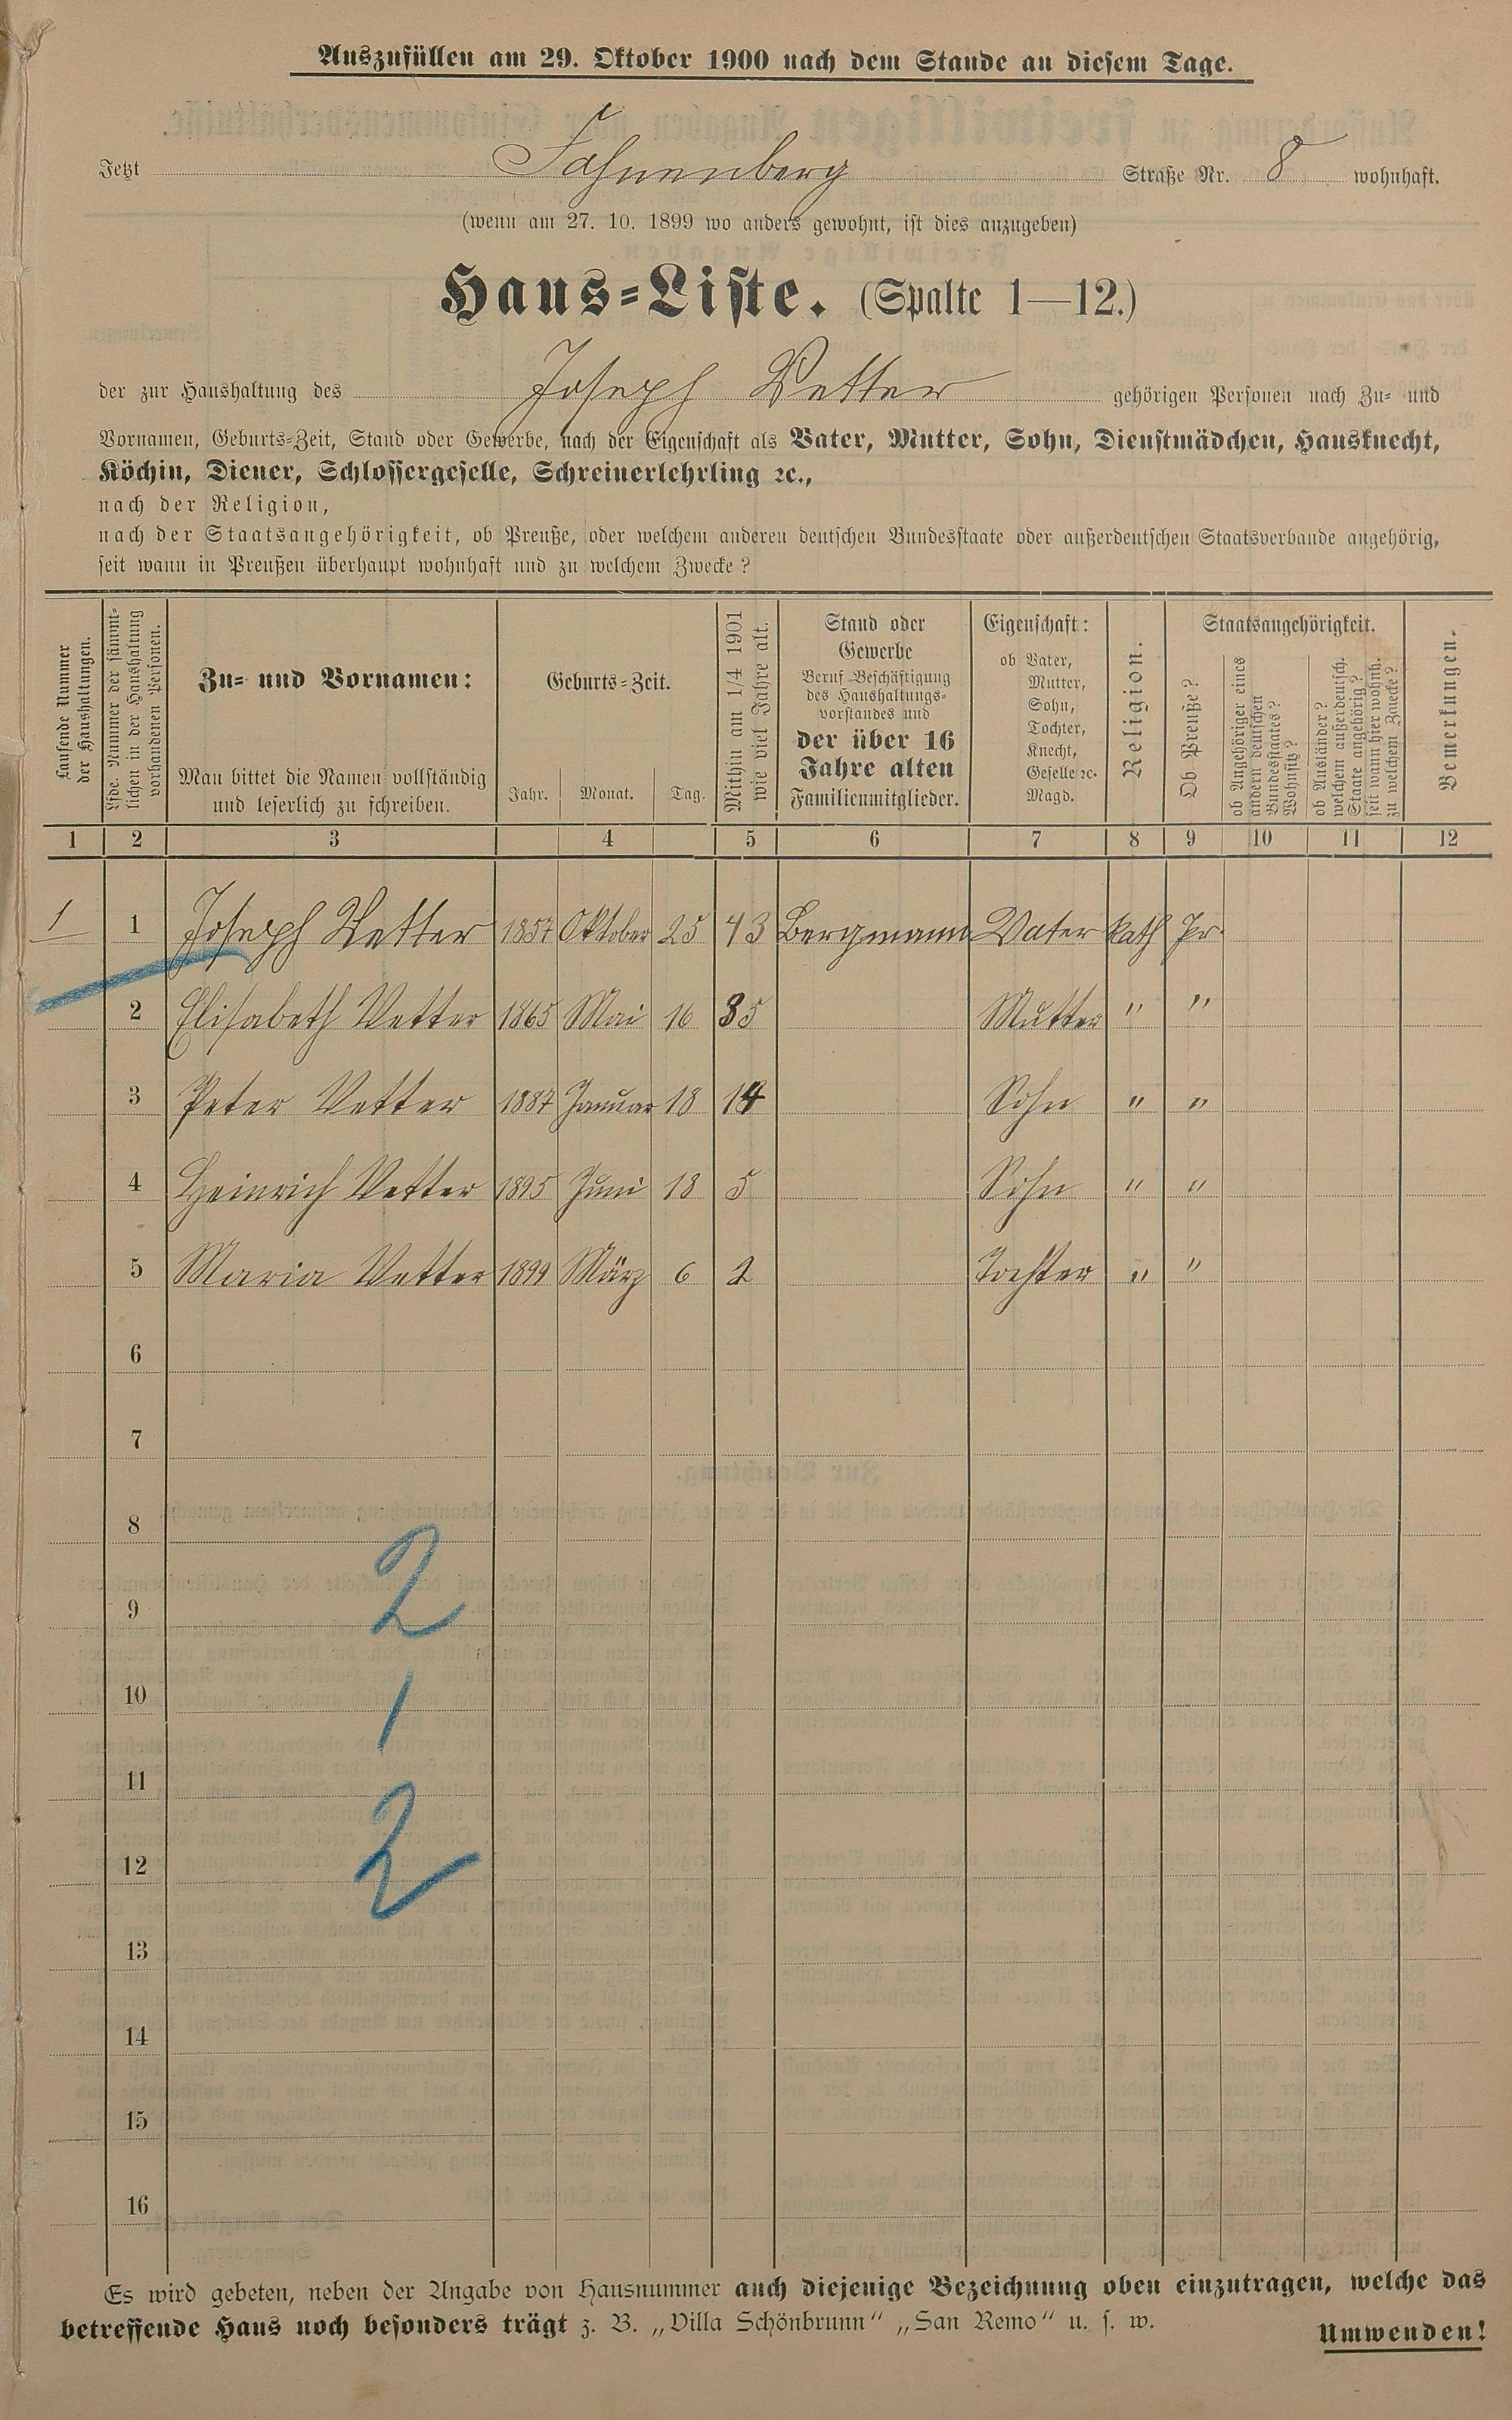 Auszufüllen am 29. Oktober 1900 nach dem Stande an diesem Tage.
Jetzt Fahnenberg Straße Nr. 8 wohnhaft.
(wenn am 27. 10. 1899 wo anders gewohnt, ist dies anzugeben)
Haus-Liste. (Spalte 1—12.)
der zur Haushaltung des Joseph Vetter gehörigen Personen nach Zu- und
Vornamen, Geburts-Zeit, Stand oder Gewerbe, nach der Eigenschaft als Vater, Mutter, Sohn, Dienstmädchen, Hausknecht,
Köchin, Diener, Schlossergeselle, Schreinerlehrling ꝛc.,
nach der Religion,
nach der Staatsangehörigkeit, ob Preuße, oder welchem anderen deutschen Bundesstaate oder außerdeutschen Staatsverbande angehörig,
seit wann in Preußen überhaupt wohnhaft und zu welchem Zwecke?
Laufende Nummer
der Haushaltungen.
Lfde. Nummer der sämmt-
lichen in der Haushaltung
vorhandenen Personen.
Zu- und Vornamen:
Man bittet die Namen vollständig
und leserlich zu schreiben.
Geburts-Zeit.
Jahr. Monat. Tag.
Mithin am 1/4 1901
wie viel Jahre alt.
Stand oder
Gewerbe
Beruf Beschäftigung
des Haushaltungs-
vorstandes und
der über 16
Jahre alten
Familienmitglieder.
Eigenschaft:
ob Vater,
Mutter,
Sohn,
Tochter,
Knecht,
Geselle ꝛc.
Magd.
Religion.
Staatsangehörigkeit.
Ob Preuße?
ob Angehöriger eines
andern deutschen
Bundesstaates?
Wohnsitz?
ob Ausländer?
welchem außerdeutsch.
Staate angehörig?
seit wann hier wohnh.
zu welchem Zwecke?
Bemerkungen.
1 2 3 4 5 6 7 8 9 10 11 12
1 1 Joseph Vetter 1857 Oktober 25 43 Bergmann Vater kath Pr.
2 Elisabeth Vetter 1865 Mai 16 35 Mutter " "
3 Peter Vetter 1887 Januar 18 14 Sohn " "
4 Heinrich Vetter 1895 Juni 18 5 Sohn " "
5 Maria Vetter 1899 März 6 2 Tochter " "
6
7
8
9 2
10 1
11
12 2
13
14
15
16
Es wird gebeten, neben der Angabe von Hausnummer auch diejenige Bezeichnung oben einzutragen, welche das
betreffende Haus noch besonders trägt z. B. „Villa Schönbrunn" „San Remo" u. s. w.
Umwenden!